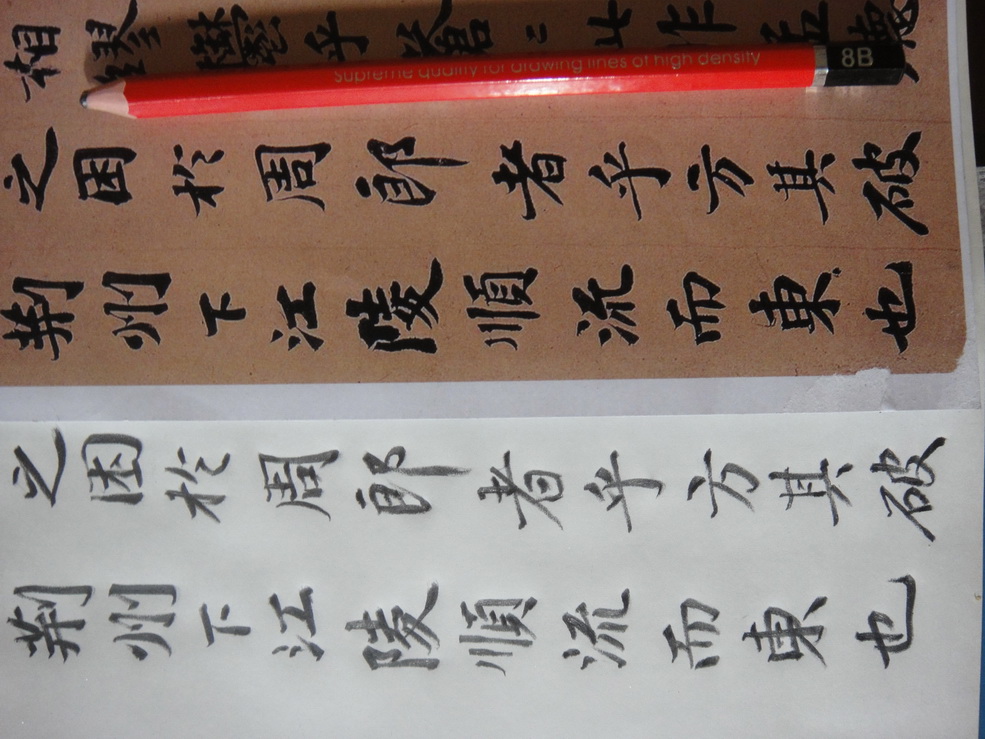 相繆鬱乎蒼〻此非孟德
Supreme quality for drawing lines of high density 8B
之困於周郎者乎方其破
荆州下江陵順流而東也
之困於周郎者乎方其破
荆州下江陵順流而東也